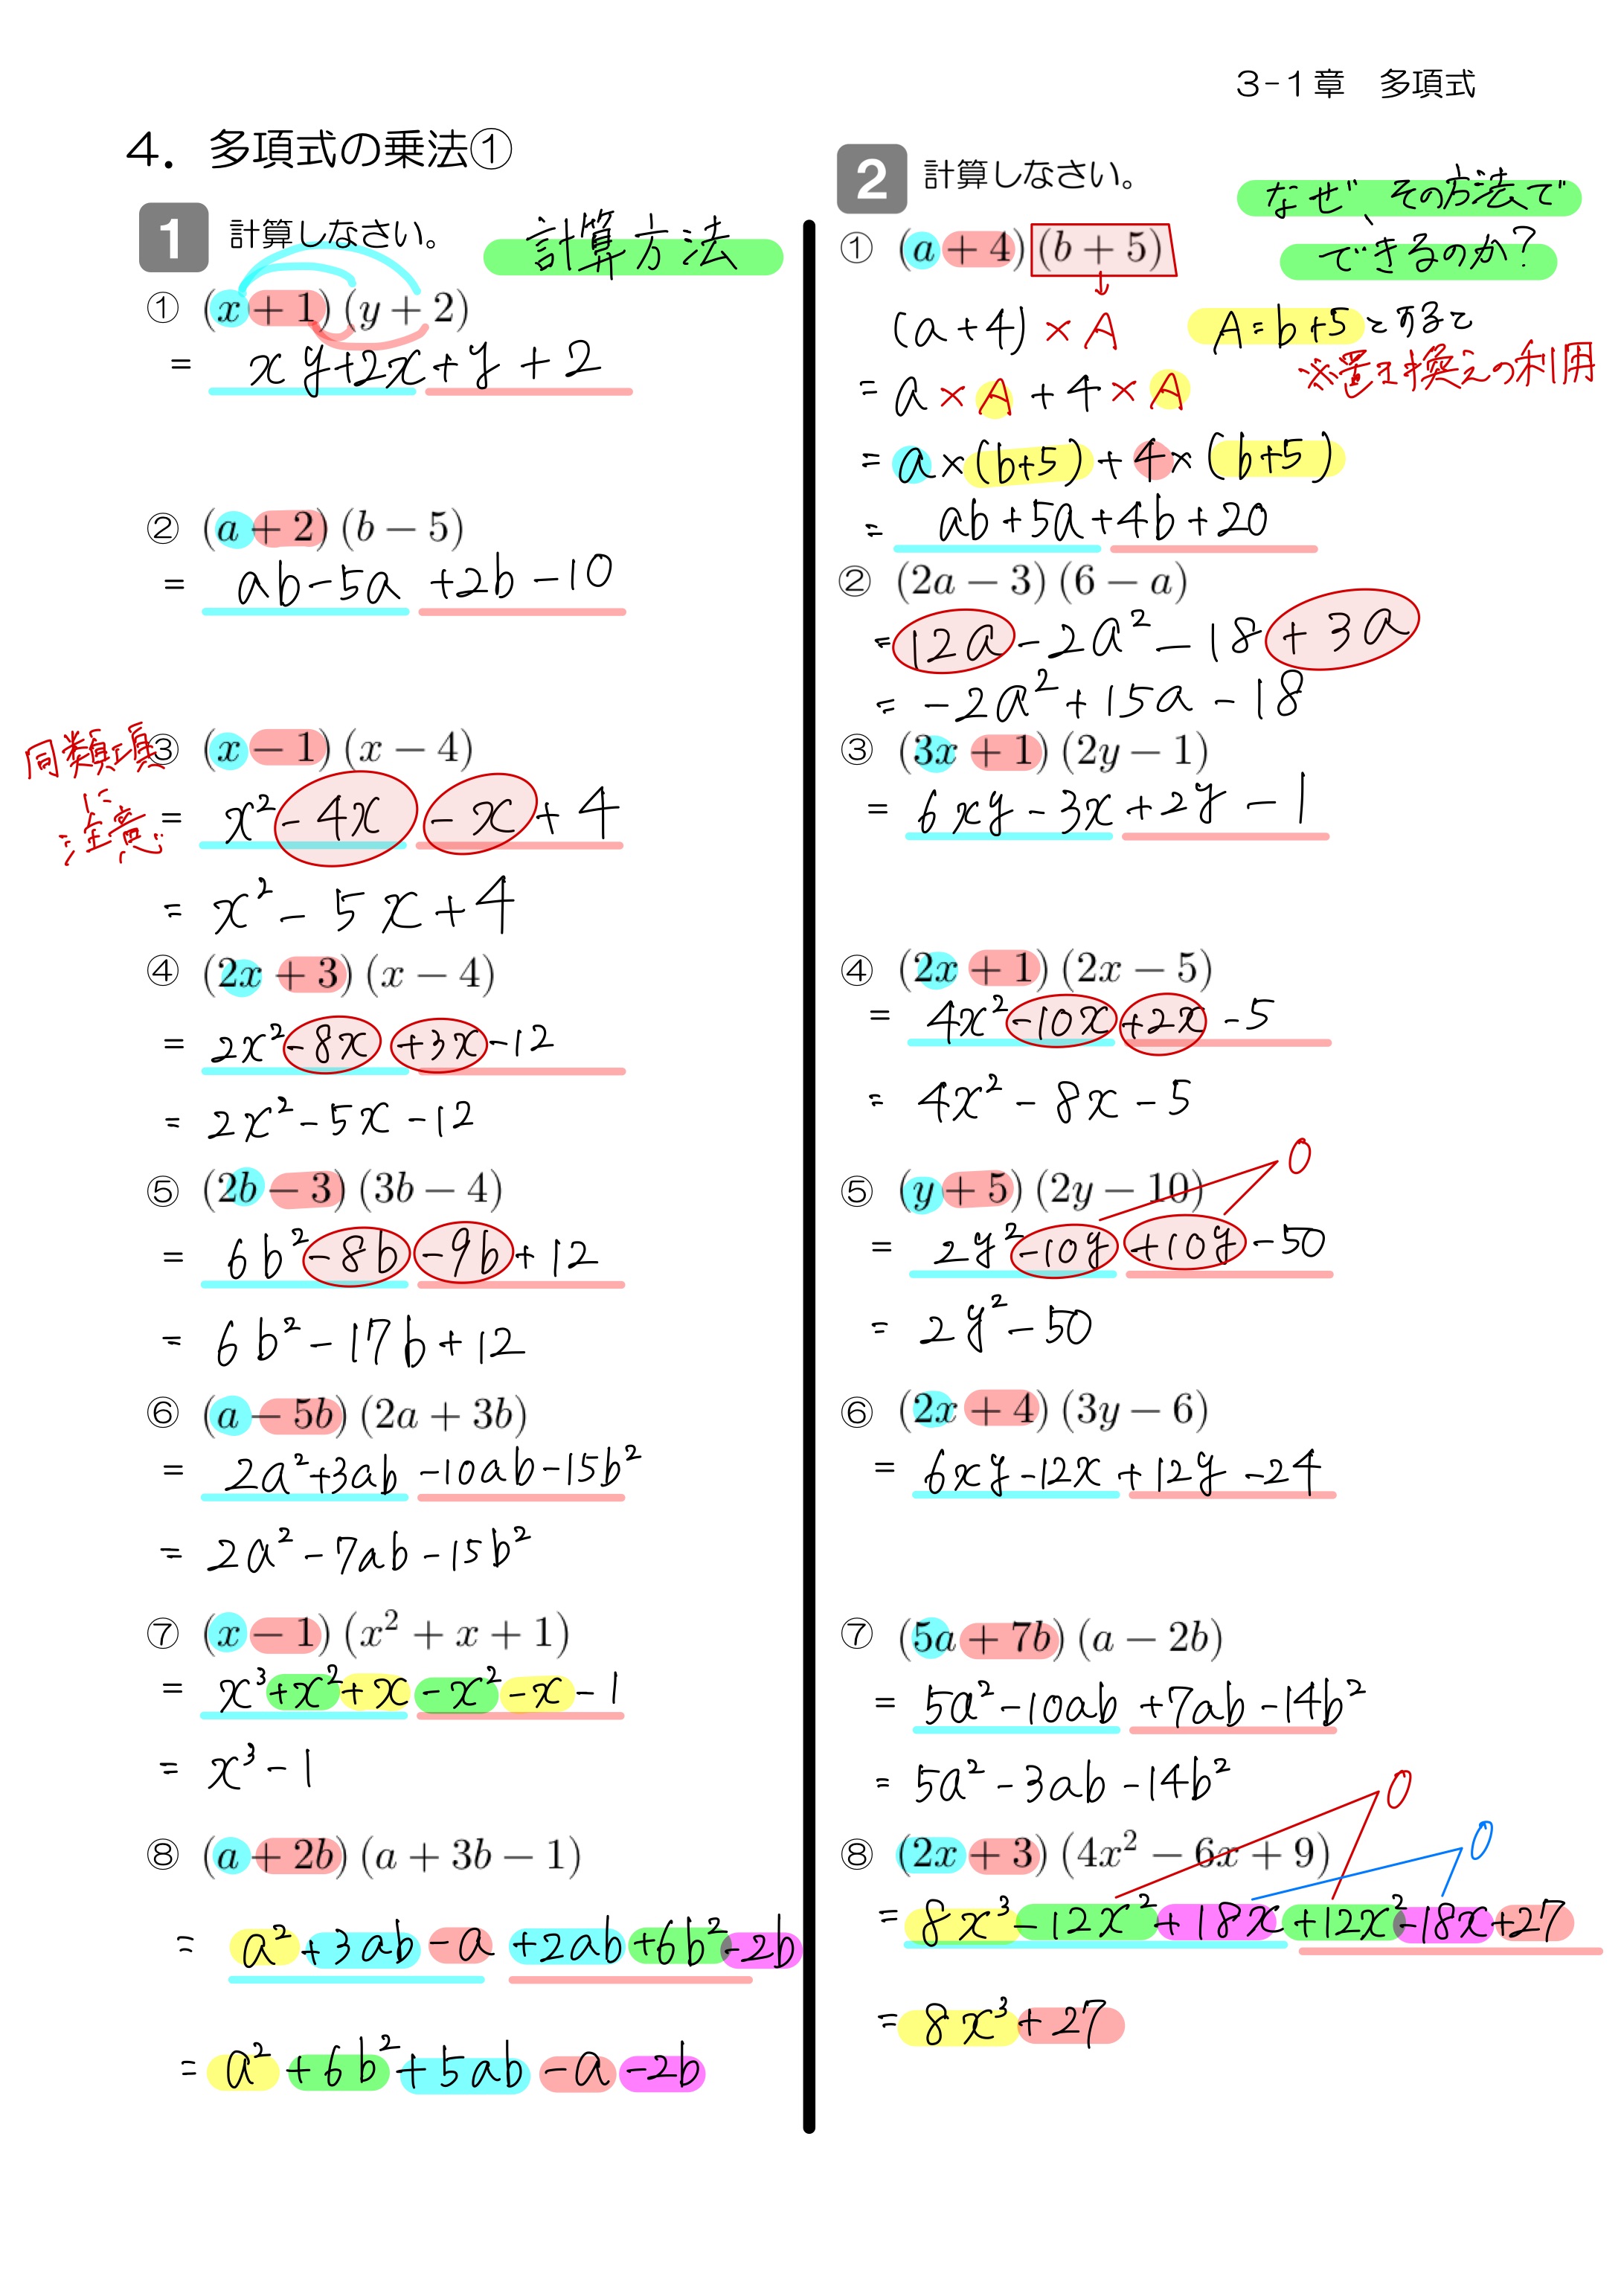 3-1章　多項式
4．多項式の乗法①
1 計算しなさい。 計算方法
① (x + 1) (y + 2)
= xy+2x+y+2
② (a + 2) (b − 5)
= ab−5a +2b−10
同類項
に
注意
③ (x − 1) (x − 4)
= x²−4x −x+4
= x²−5x+4
④ (2x + 3) (x − 4)
= 2x²−8x +3x−12
= 2x²−5x−12
⑤ (2b − 3) (3b − 4)
= 6b²−8b −9b+12
= 6b²−17b+12
⑥ (a − 5b) (2a + 3b)
= 2a²+3ab −10ab−15b²
= 2a²−7ab−15b²
⑦ (x − 1) (x² + x + 1)
= x³+x²+x −x²−x−1
= x³−1
⑧ (a + 2b) (a + 3b − 1)
= a²+3ab−a +2ab+6b²−2b
= a²+6b²+5ab−a−2b
2 計算しなさい。
なぜ、その方法で
できるのか？
① (a + 4) (b + 5)
(a+4)×A A=b+5とすると
※置き換えの利用
= a×A+4×A
= a×(b+5)+4×(b+5)
= ab+5a+4b+20
② (2a − 3) (6 − a)
= 12a−2a²−18+3a
= −2a²+15a−18
③ (3x + 1) (2y − 1)
= 6xy−3x+2y−1
④ (2x + 1) (2x − 5)
= 4x²−10x+2x−5
= 4x²−8x−5
0
⑤ (y + 5) (2y − 10)
= 2y²−10y +10y−50
= 2y²−50
⑥ (2x + 4) (3y − 6)
= 6xy−12x +12y−24
⑦ (5a + 7b) (a − 2b)
= 5a²−10ab +7ab−14b²
= 5a²−3ab−14b²
0
0
⑧ (2x + 3) (4x² − 6x + 9)
= 8x³−12x²+18x +12x²−18x+27
= 8x³+27